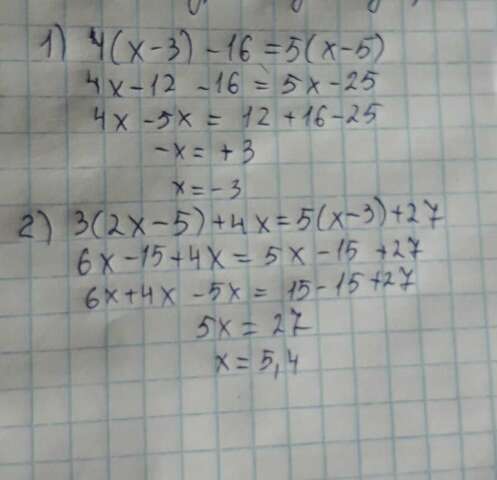 1) 4(x-3)-16=5(x-5)
4x-12-16=5x-25
4x-5x=12+16-25
-x=+3
x=-3
2) 3(2x-5)+4x=5(x-3)+27
6x-15+4x=5x-15+27
6x+4x-5x=15-15+27
5x=27
x=5,4